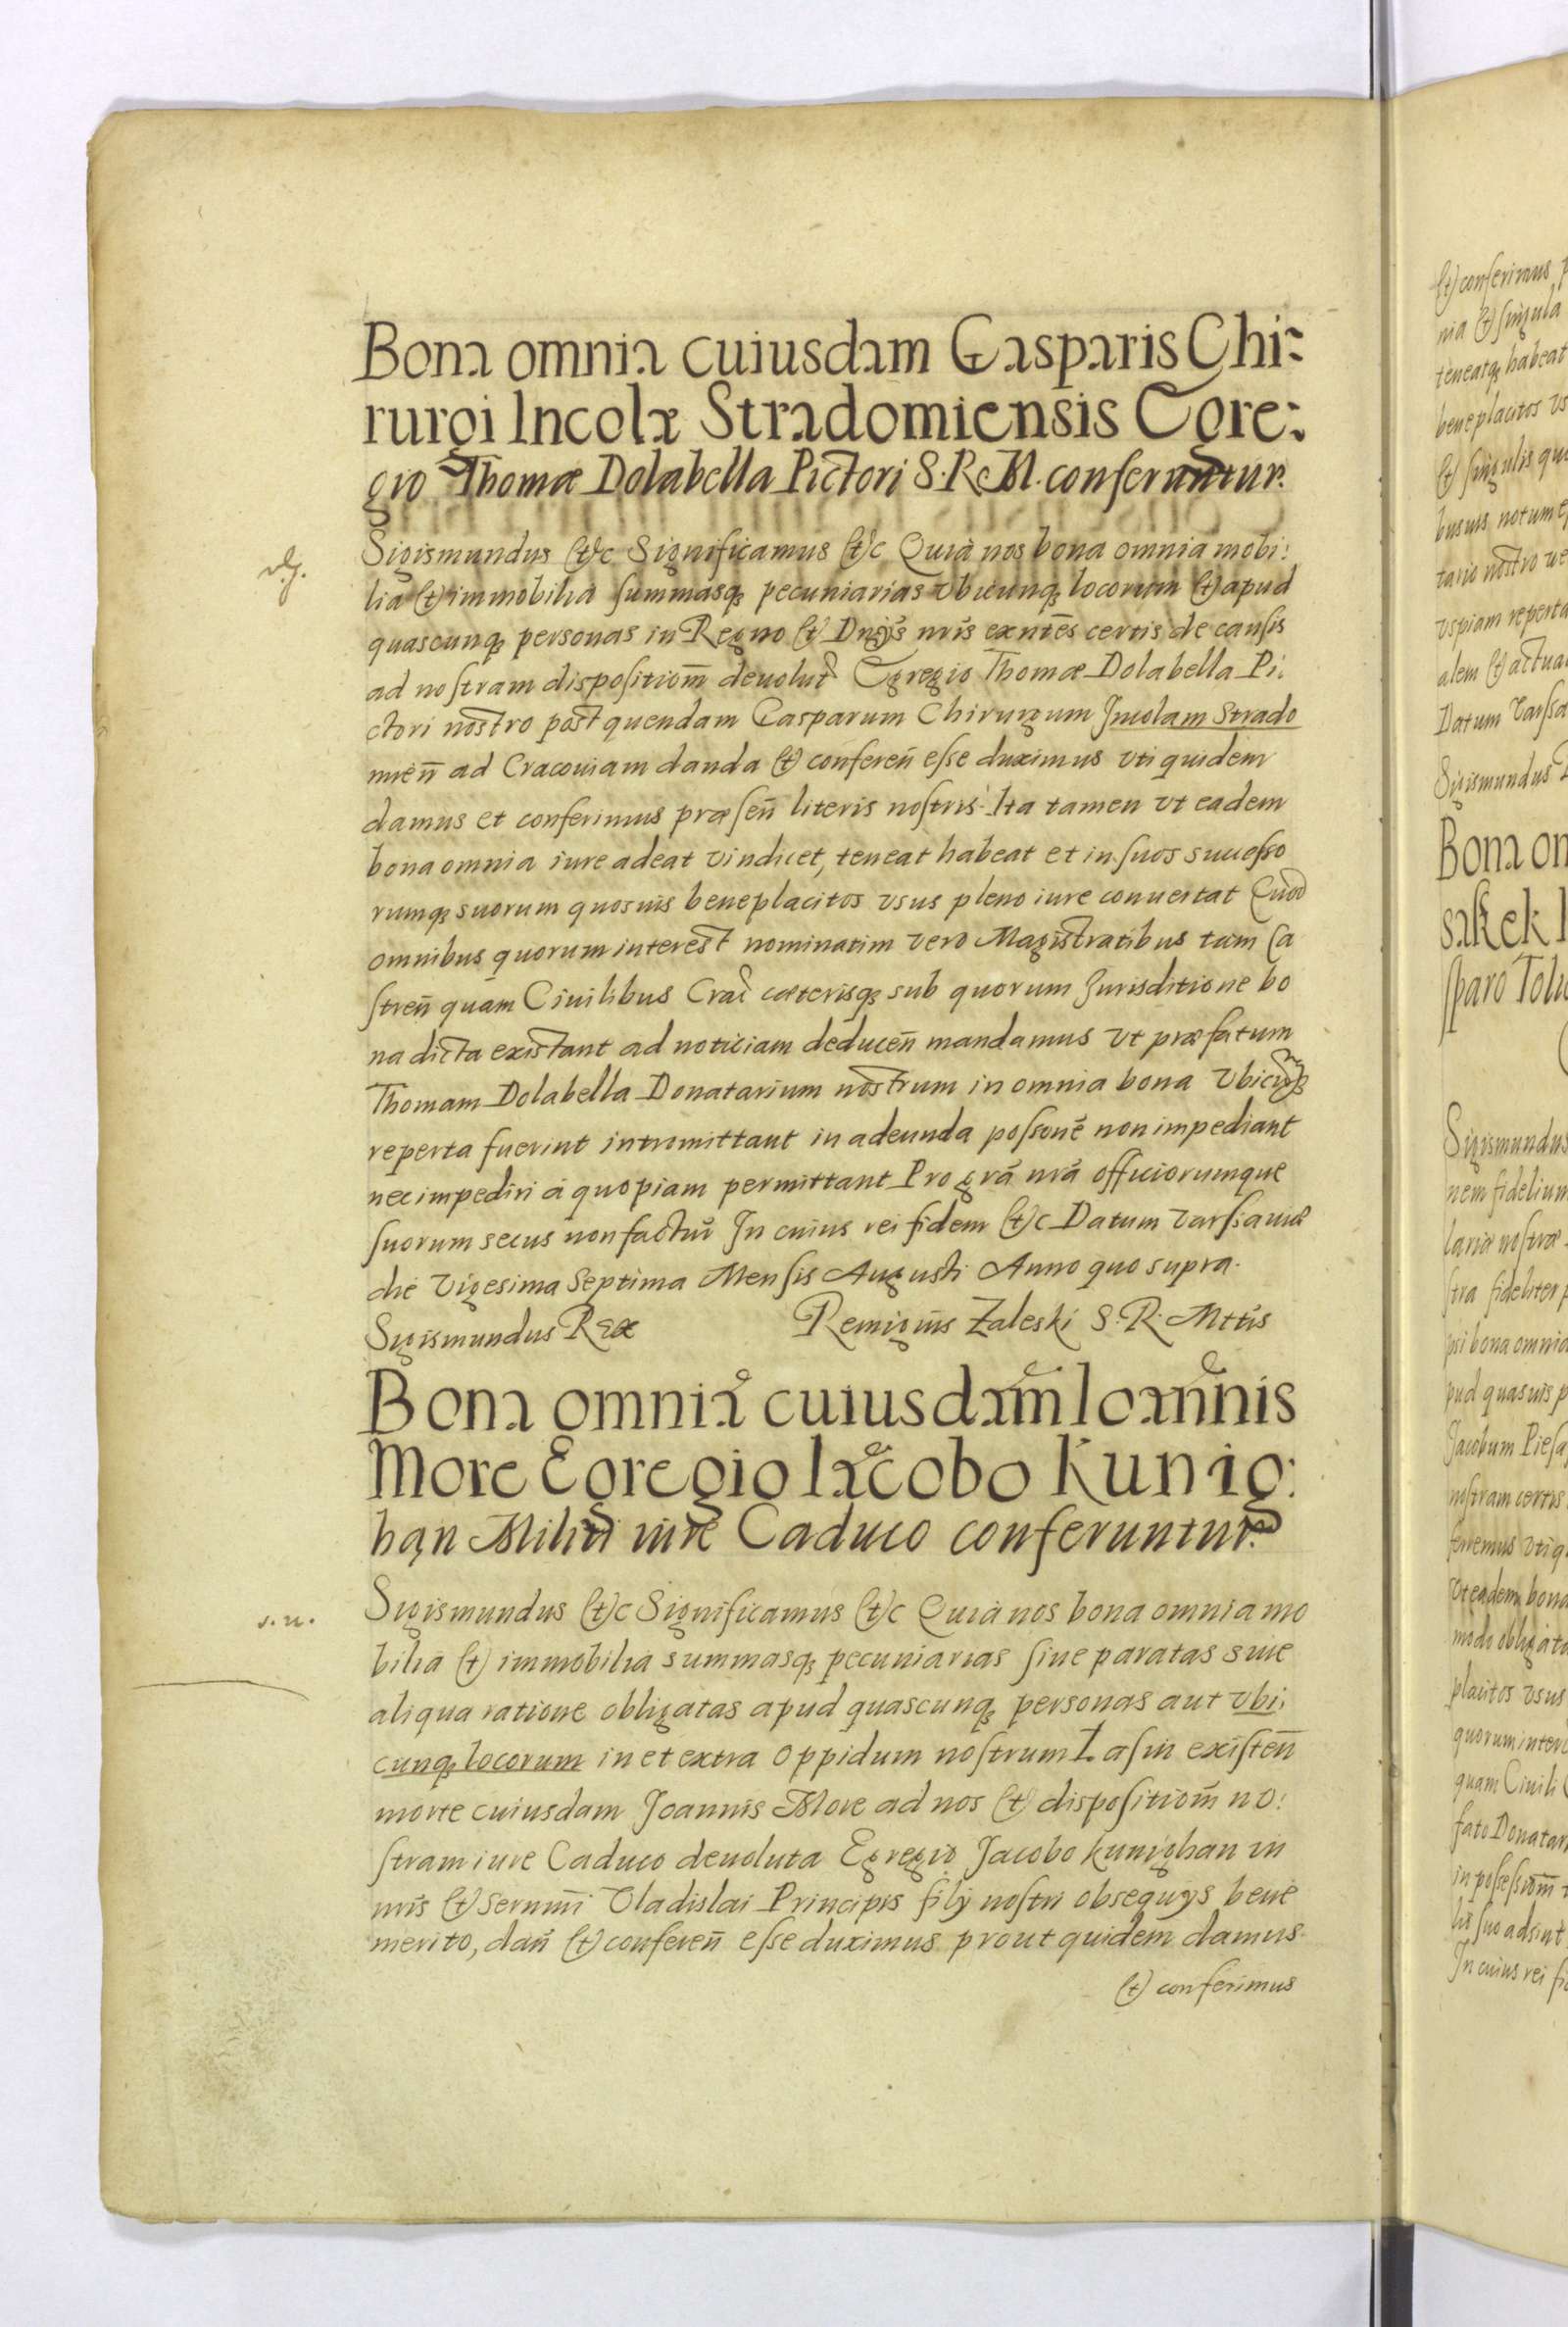 Bona omnia cuiusdam Gasparis Chi:
rurgi Incolæ Stradomiensis Egre:
gio Thomæ Dolabella Pictori S. R. M. conferuntur.
Sigismundus &c Significamus &c Quià nos bona omnia mobi:
lia & immobilia summasq; pecuniarias vbicunq; locorum & apud
quascunq; personas in Regno & Dnijs nris exntes certis de causis
ad nostram dispositiom deuolut Egregio Thomæ Dolabella Pi:
ctori nostro post quendam Casparum Chirurgum Incolam Strado
mien ad Cracouiam danda & conferen esse duximus vti quidem
damus et conferimus præsen literis nostris. Ita tamen vt eadem
bona omnia iure adeat vindicet, teneat habeat et in suos successo
rumq; suorum quosuis beneplacitos vsus pleno iure conuertat Quod
omnibus quorum interest nominatim vero Magistratibus tam Ca
stren quam Ciuilibus Crac cæterisq; sub quorum Jurisditione bo
na dicta existant ad noticiam deducen mandamus vt præfatum
Thomam Dolabella Donatarium nostrum in omnia bona vbicunq;
reperta fuerint intromittant in adeunda possone non impediant
nec impediri à quopiam permittant Pro gra nra officiorumque
suorum secus non factur In cuius rei fidem &c Datum Varsiauiæ
die Vigesima Septima Mensis Augusti Anno quo supra.
Sigismundus Rex Remigius Zaleski S. R. Mttis
Bona omnia cuiusdam Ioannis
More Egregio Iacobo Kunig:
han Militi iure Caduco conferuntur.
s. n.
Sigismundus &c Significamus &c Quià nos bona omnia mo
bilia & immobilia summasq; pecuniarias siue paratas siue
aliqua ratione obligatas apud quascunq; personas aut vbi:
cunq; locorum in et extra Oppidum nostrum Lasin existen
morte cuiusdam Joannis More ad nos & dispositiom no:
stram iure Caduco deuoluta Egregio Jacobo Kunighan in
nris & Sernmi Vladislai Principis filij nostri obsequijs bene
merito, dan & conferen esse duximus prout quidem damus
& conferimus
& conferimus
nia & singula
teneatq; habeat
beneplacitos vs
& singulis
busuis notum
tario nostro
vspiam reperta
alem & actua
Datum Varsa
Sigismundus
Bona om
sakek
sparo
Sigismundus
nem fidelium
lariæ nostræ
stra fideliter
psi bona omnia
pud quasuis
Jacobum
nostram certis
vt eadem bona
modo obligata
placitos vsus
quorum inter
quam Ciuili
fato Donatar
in possessiom
suo adsint
In cuius rei